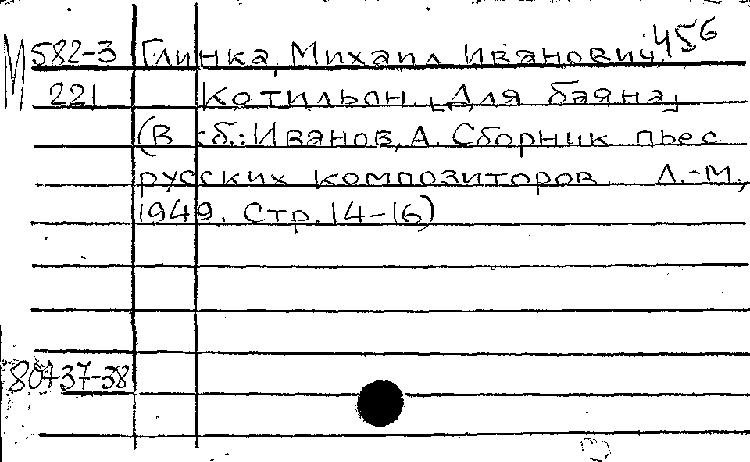 М 582-3 Глинка, Михаил Иванович 456
221 Котильон. [Для баяна]
(В сб.: Иванов, А. Сборник пьес
русских композиторов Л.-М.,
1949. Стр. 14-16)
80437-38